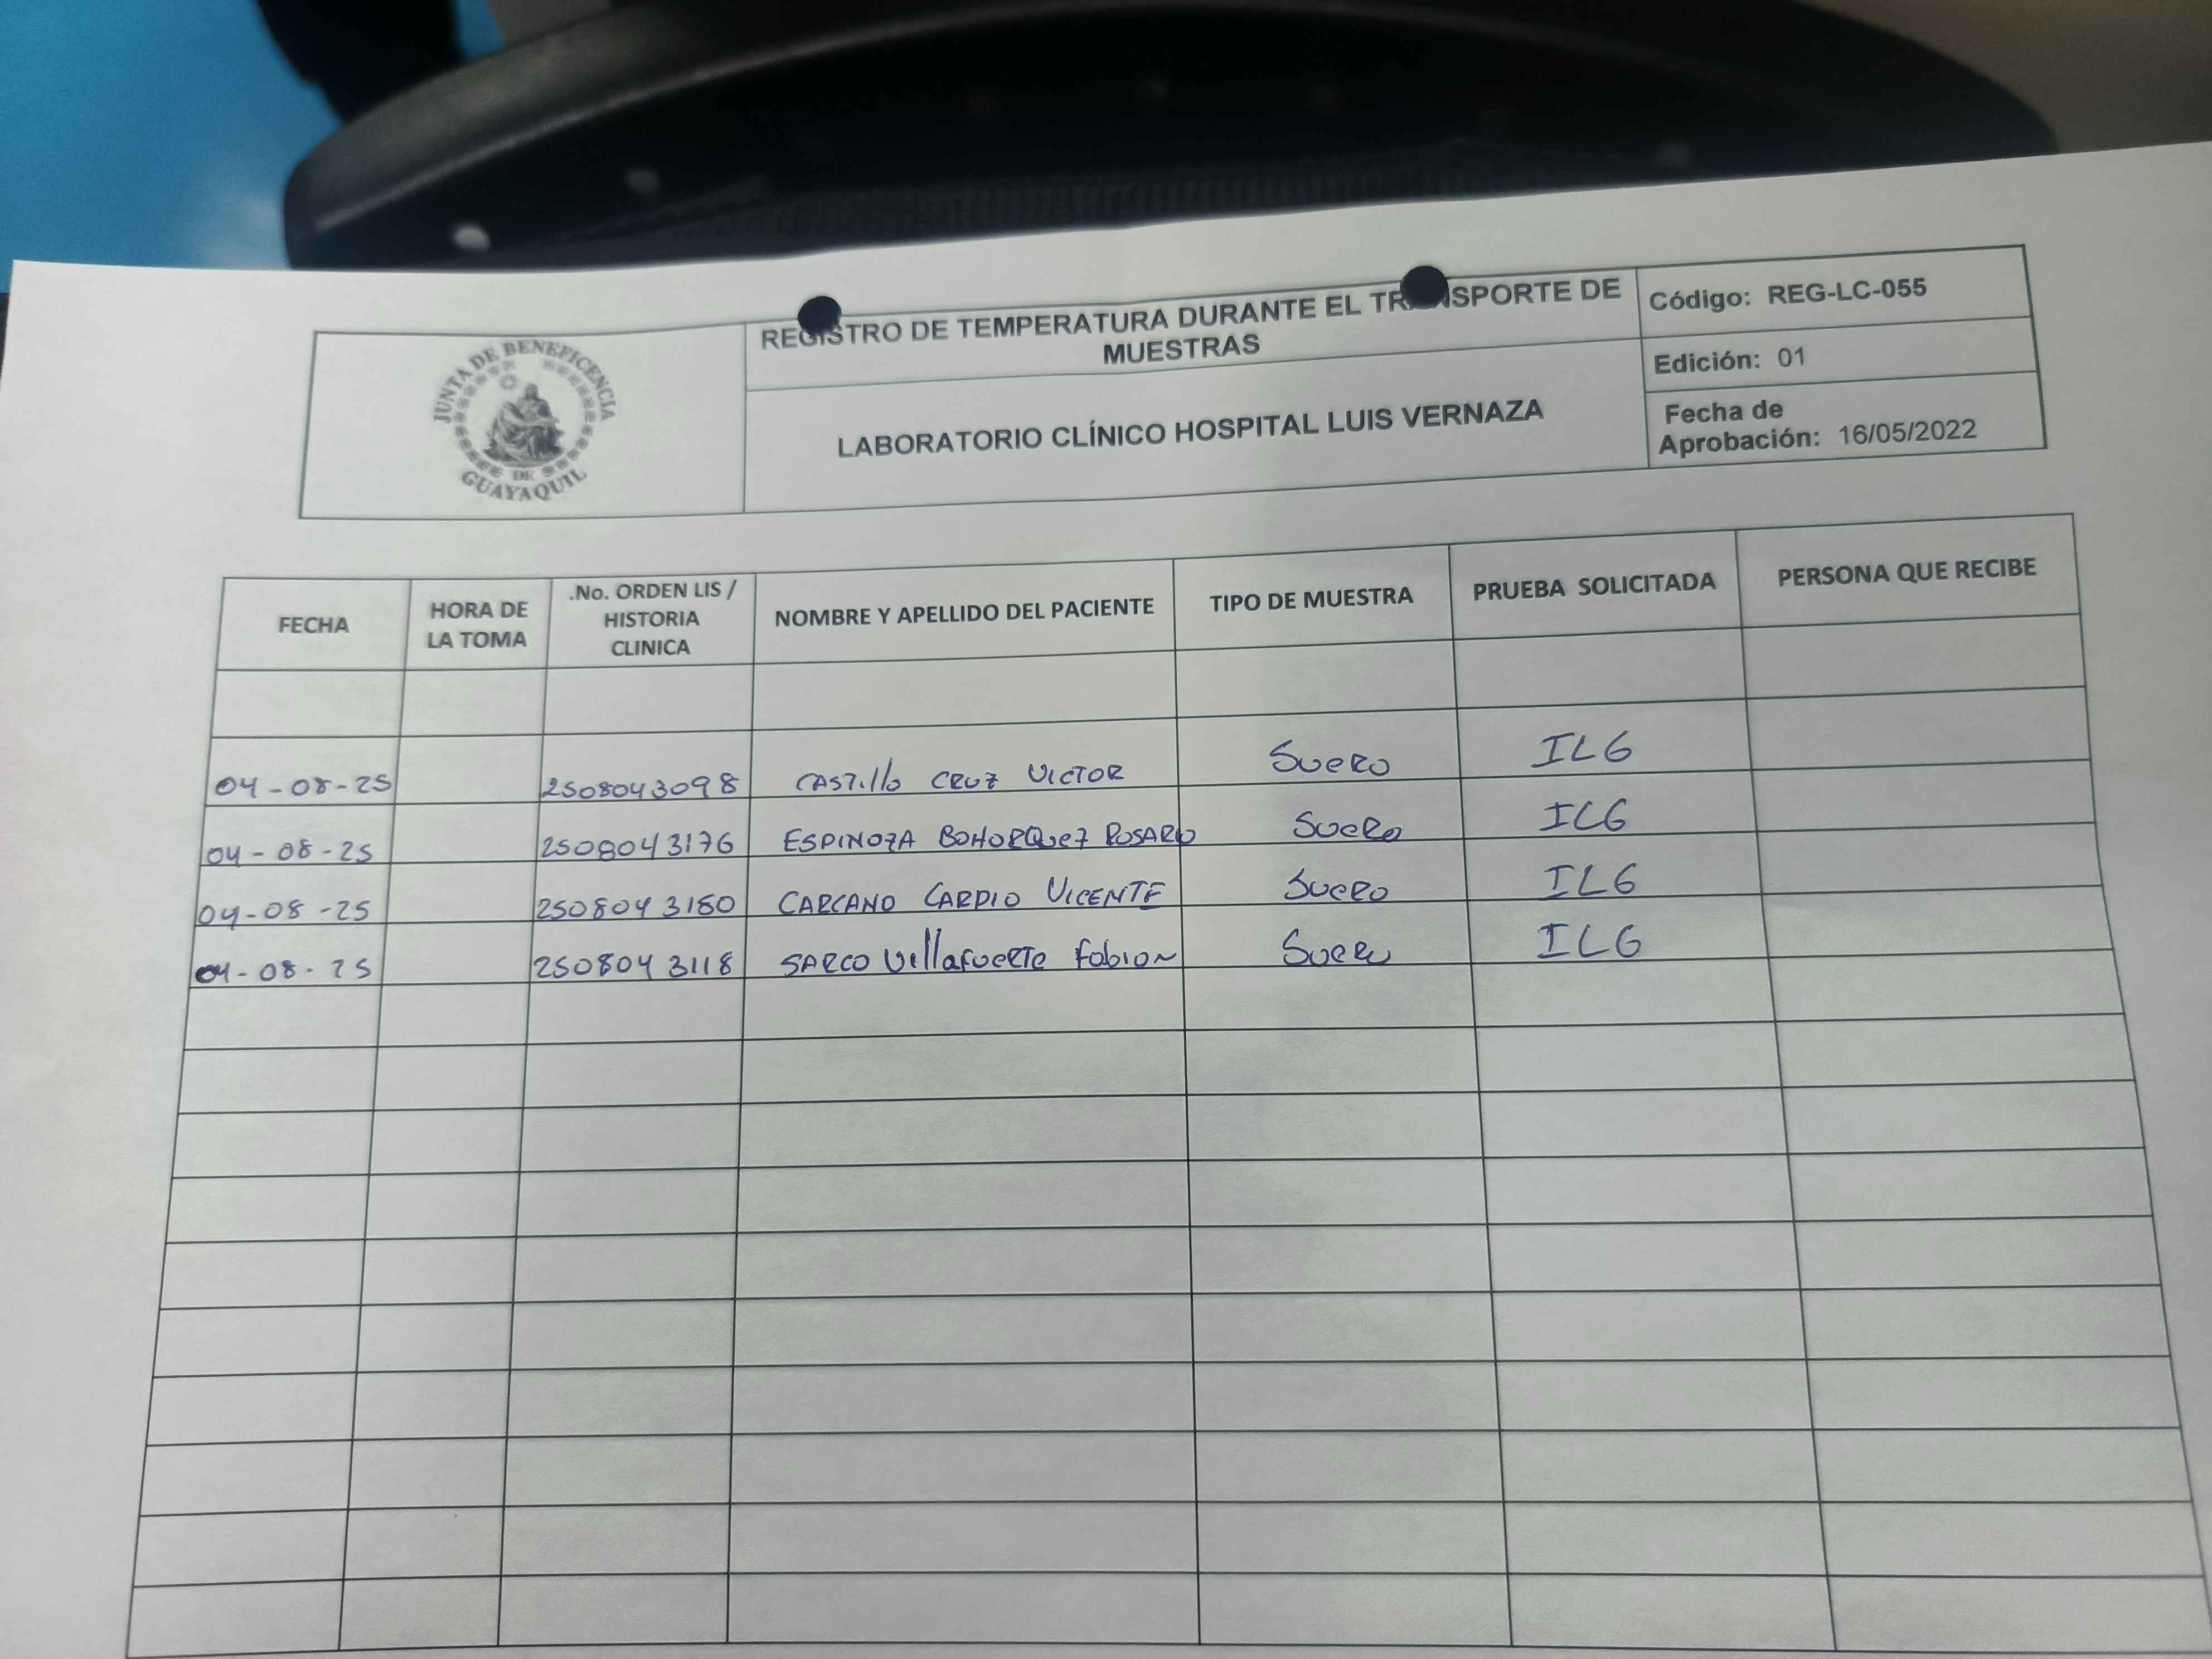 JUNTA DE BENEFICENCIA
DE
GUAYAQUIL
REGISTRO DE TEMPERATURA DURANTE EL TRANSPORTE DE
MUESTRAS
LABORATORIO CLÍNICO HOSPITAL LUIS VERNAZA
Código: REG-LC-055
Edición: 01
Fecha de
Aprobación: 16/05/2022
FECHA
HORA DE
LA TOMA
.No. ORDEN LIS /
HISTORIA
CLINICA
NOMBRE Y APELLIDO DEL PACIENTE
TIPO DE MUESTRA
PRUEBA SOLICITADA
PERSONA QUE RECIBE
04-08-25 2508043098 CASTillo CRUZ VICTOR SUERO IL6
04-08-25 2508043176 ESPINOZA BOHORQUEZ ROSARIO SUERO IL6
04-08-25 2508043180 CARCANO CARPIO VICENTE SUERO IL6
04-08-25 2508043118 SARCO VillaFUERTE Fabian SUERO IL6